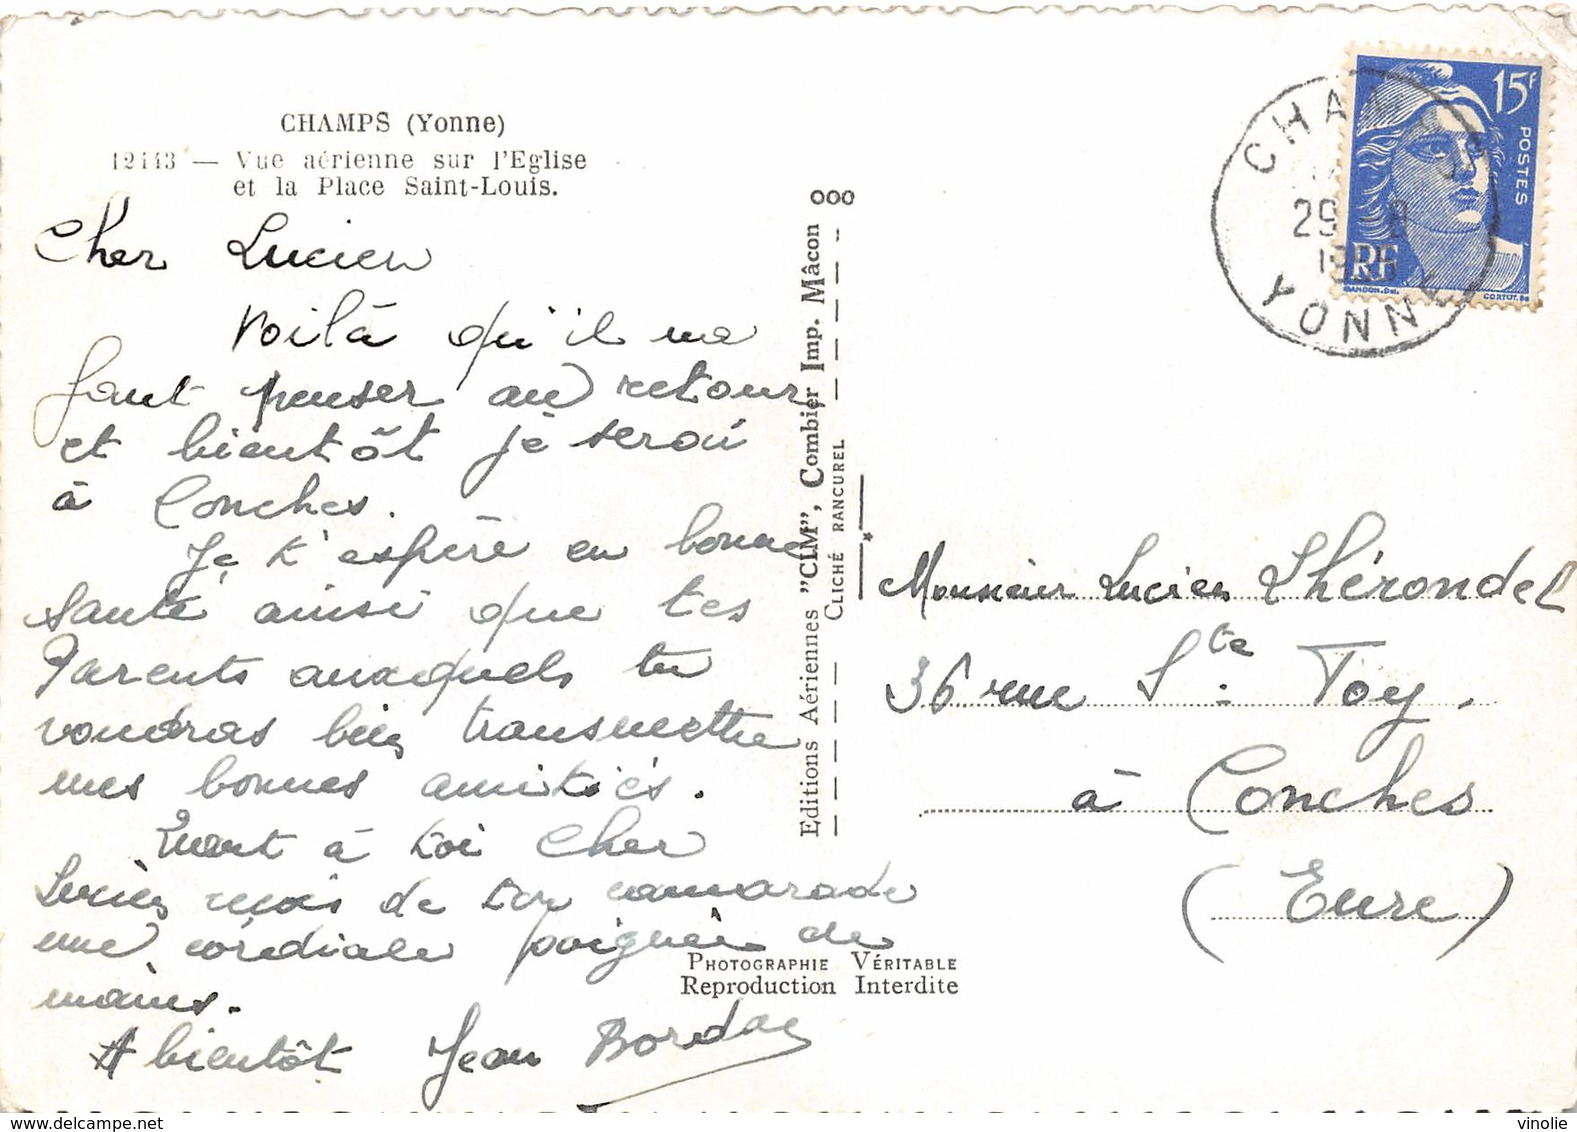 CHAMPS (Yonne)
12143 — Vue aérienne sur l'Eglise
et la Place Saint-Louis.
Cher Lucien
Voilà qu'il me
faut penser au retour
et bientôt je serai
à Conches.
Je t'espère en bonne
santé ainsi que tes
Parents auxquels tu
voudras bien transmettre
mes bonnes amitiés.
Quant à toi Cher
Lucien reçois de ton camarade
une cordiale poignée de
mains.
A bientôt Jean
000
Editions Aériennes "CIM", Combier Imp. Mâcon
CLICHÉ RANCUREL
PHOTOGRAPHIE VÉRITABLE
Reproduction Interdite
15F
POSTES
RF
GANDON.Del.
CORTOT.Sc
CHAMPS
29
YONNE
Monsieur Lucien Lhérondel
36 rue Ste Foy.
à Conches
(Eure)
delcampe.net
vinolie